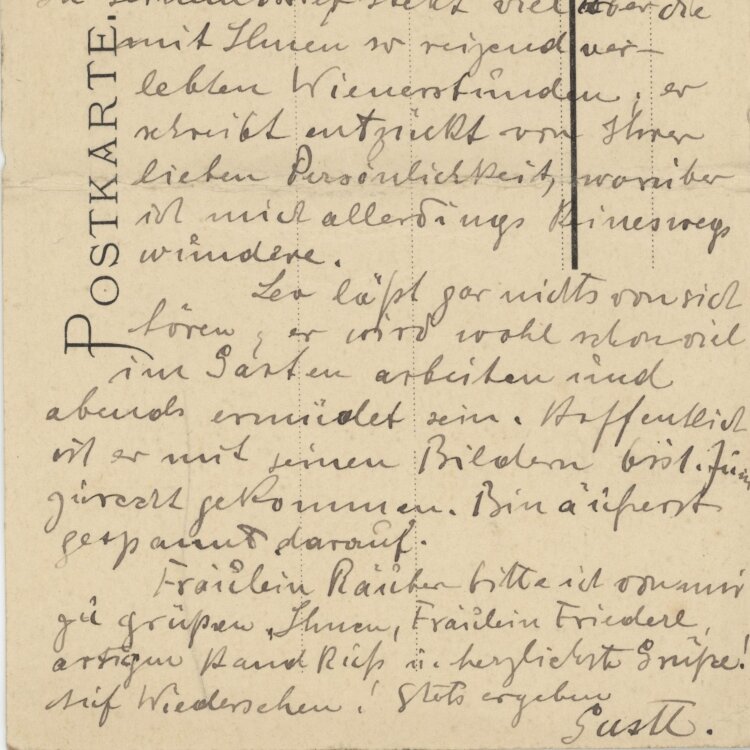 In seinem Brief steht viel über die
mit Ihnen so reizend ver-
lebten Wienerstunden; er
schreibt entzückt von Ihrer
lieben Persönlichkeit, worüber
ich mich allerdings keineswegs
wundere.
Leo läßt gar nichts von sich
hören; er wird wohl schon viel
im Garten arbeiten und
abends ermüdet sein. Hoffentlich
ist er mit seinen Bildern
zurecht gekommen. Bin äußerst
gespannt darauf.
Fräulein Räuber bitte ich von mir
zu grüßen, Ihnen, Fräulein Friederl,
artigen Handkuß u. herzlichste Grüße!
Auf Wiedersehen! Stets ergeben
Gustl.
POSTKARTE.